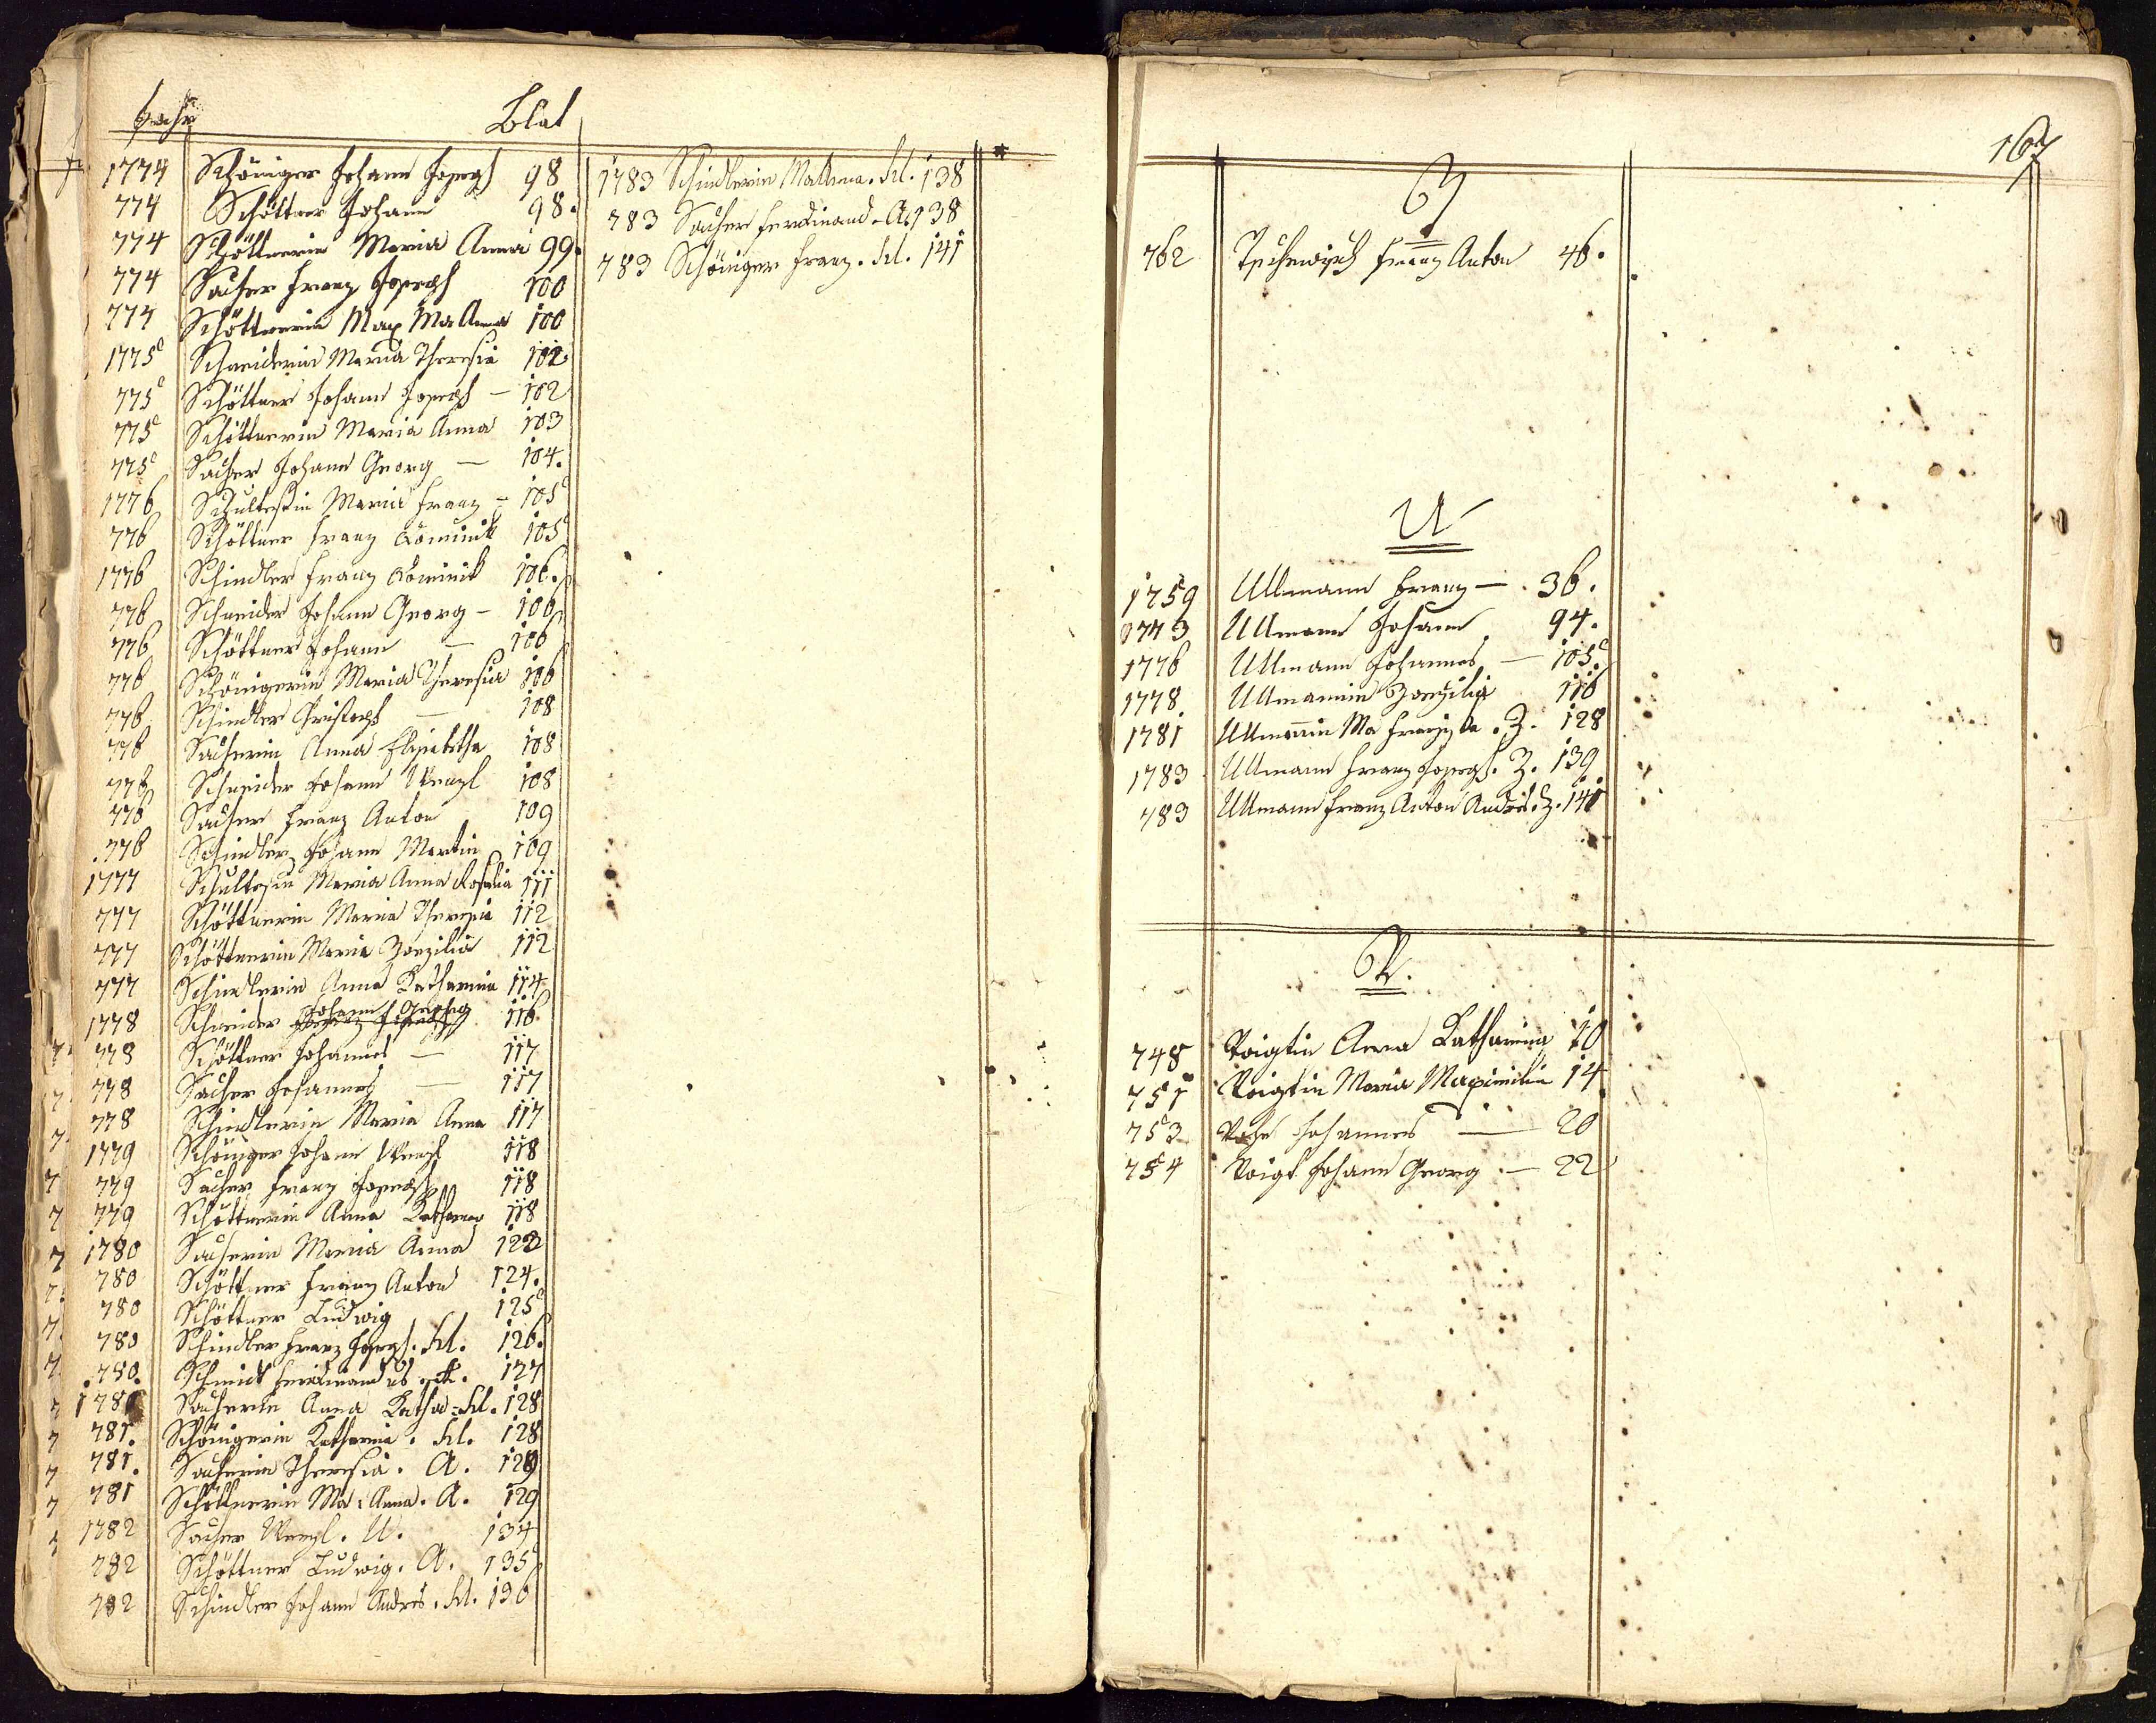 Jahr Blat
1774 Schöniger Johann Joseph 98
774 Schöttner Johann 98.
774 Schöttnerin Maria Anna 99.
774 Sacher Franz Joseph 100
774 Schöttnerin Ma Anna 100
1775 Schneiderin Maria Theresia 102
775 Schöttner Johann Joseph — 102
775 Schöttnerin Maria Anna 103
775 Sacher Johann Georg — 104.
1776 Schultesin Maria Franz = 105
776 Schöttner Franz Dominik 105
1776 Schindler Franz Dominik 106.
776 Schneider Johann Georg — 106
776 Schöttner Johann — 106
776 Schönigerin Maria Theresia 106
776 Schindler Christoph — 108
776 Sacherin Anna Elisabetha 108
776 Schneider Johann Wenzl 108
776 Sacher Franz Anton 109
.776 Schindler Johann Martin 109
1777 Schultesin Maria Anna Rosalia 111
777 Schöttnerin Maria Theresia 112
777 Schöttnerin Maria Zoezilia 112
777 Schindlerin Anna Katharina 114
1778 Schneider Johann 116
778 Schöttner Johannes — 117
778 Sacher Johannes — 117
778 Schindlerin Maria Anna 117
1779 Schöniger Johann Wenzl 118
779 Sacher Franz Joseph 118
779 Schöttnerin Anna 118
1780 Sacherin Maria Anna
780 Schöttner Franz Anton 124.
780 Schöttner Ludwig 125
780 Schindler Franz Joseph. Kl. 126.
.780. Schmidt Ferdinandus 127
1781 Sacherin Anna Katha= Kl. 128
781. Schönigerin Katharina. Kl. 128
781. Sacherin Theresia. A. 129
781 Schöttnerin Ma: Anna. A. 129
1782 Sacher Wenzl. U. 134
782 Schöttner Ludwig. A. 135
782 Schindler Johann Andres. Kl. 136
1783 Schindlerin MaAnna. Kl. 138
783 Sacher Ferdinand. A. 138
783 Schöniger Franz. Kl. 141
167
T
762 Franz Anton 46.
U
1759 Ullmann Franz — . 36.
1773 Ullmann Johann 94.
1776 Ullmann Johannes — 105.
1778 Ullmannin Zoezilia 116
1781 Ullmanin Ma Franziska. Z. 128
1783 Ullmann Franz Joseph. Z. 139
783 Ullmann Franz Anton Andres. Z. 141
V.
748 Voigtin Anna Katharina 10
751 Voigtin Maria Maximilia 14
753 Johannes — 20
754 Voigt Johann Georg. — 22